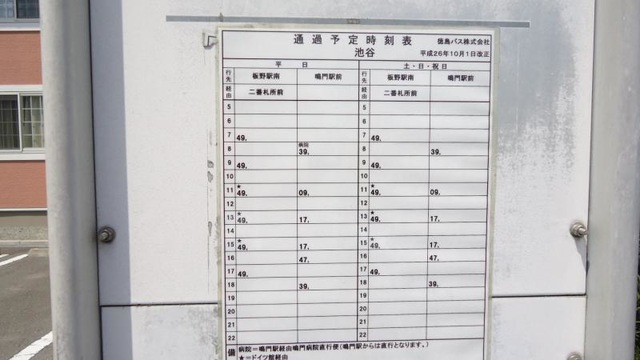 通過予定時刻表 徳島バス株式会社
池谷 平成26年10月1日改正
平 日 土・日・祝日
行先 板野駅南 鳴門駅前 行先 板野駅南 鳴門駅前
経由 二番札所前 経由 二番札所前
5 5
6 6
7 49. 7 49.
8 病院 39. 8 39.
9 49. 9 49.
10 10
11 ★49. 09. 11 ★49. 09.
12 12
13 ★49. 17. 13 ★49. 17.
14 14
15 ★49. 17. 15 ★49. 17.
16 47. 16 47.
17 49. 17 49.
18 39. 18 39.
19 19
20 20
21 21
22 22
備 病院=鳴門駅経由鳴門病院直行便(鳴門駅からは直行となります。)
★=ドイツ館経由